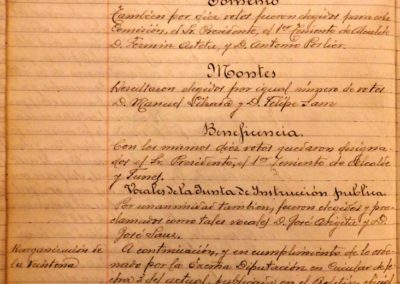 Convenio
Tambien por diez votos fueron elegidos para esta
Comisión, el Sr. Presidente, el 1er Teniente de Alcalde
D. Fermin y D. Antonio Portier.
Montes
Resultaron elegidos por igual número de votos
D. Manuel y D. Felipe Sanz
Beneficencia.
Con los mismos diez votos quedaron designa-
dos el Sr. Presidente, el 1er Teniente de Alcalde
y
Vocales de la Junta de Instrucción publica.
Por unanimidad tambien, fueron elegidos y pro-
clamados como tales vocales D. José y D.
José Sanz.
Reorganización de
la
A continuación, y en cumplimiento de lo orde-
nado por la Excma Diputación en circular de fe-
cha 3 del actual, en el Boletin oficial